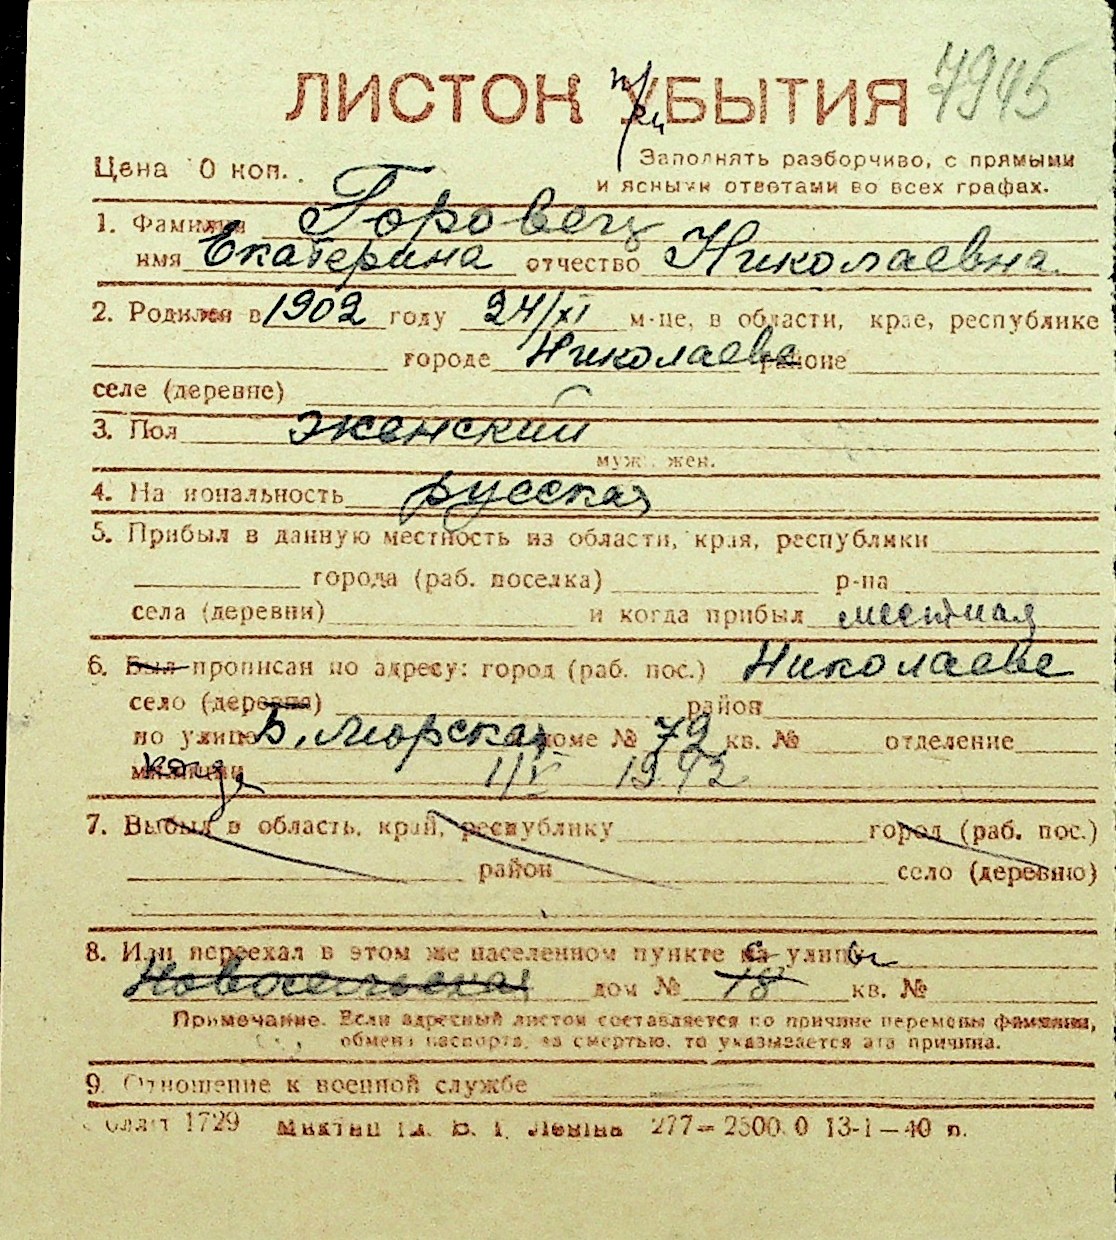 ЛИСТОК УБЫТИЯ 7945
Цена 0 коп. Заполнять разборчиво, с прямыми
и ясными ответами во всех графах.
1. Фамилия Горовец
имя Екатерина отчество Николаевна
2. Родился в 1902 году 24/XI м-це, в области, крае, республике
городе Николаеве районе
селе (деревне)
3. Пол женский
муж. жен.
4. На иональность русская
5. Прибыл в данную местность из области, края, республики
города (раб. поселка) р-на
села (деревни) и когда прибыл местная
6. Был прописан по адресу: город (раб. пос.) Николаеве
село (деревня) район
по улице Б. Морская доме № 79 кв. № отделение
милиции когда 1/V 1942
7. Выбыл в область, край, республику город (раб. пос.)
район село (деревню)
8. Или переехал в этом же населенном пункте с улицы
Новосельская дом № 18 кв. №
Примечание. Если адресный листок составляется по причине перемены фамилии,
обмена паспорта, за смертью, то указывается эта причина.
9. Отношение к военной службе
1729 Леніна 277— 2500.0 13-1—40 п.